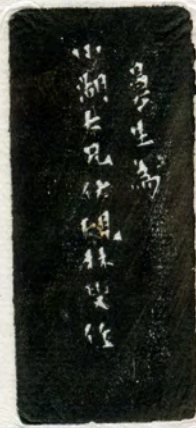 曼生為
小湖大兄仿硯林叟作